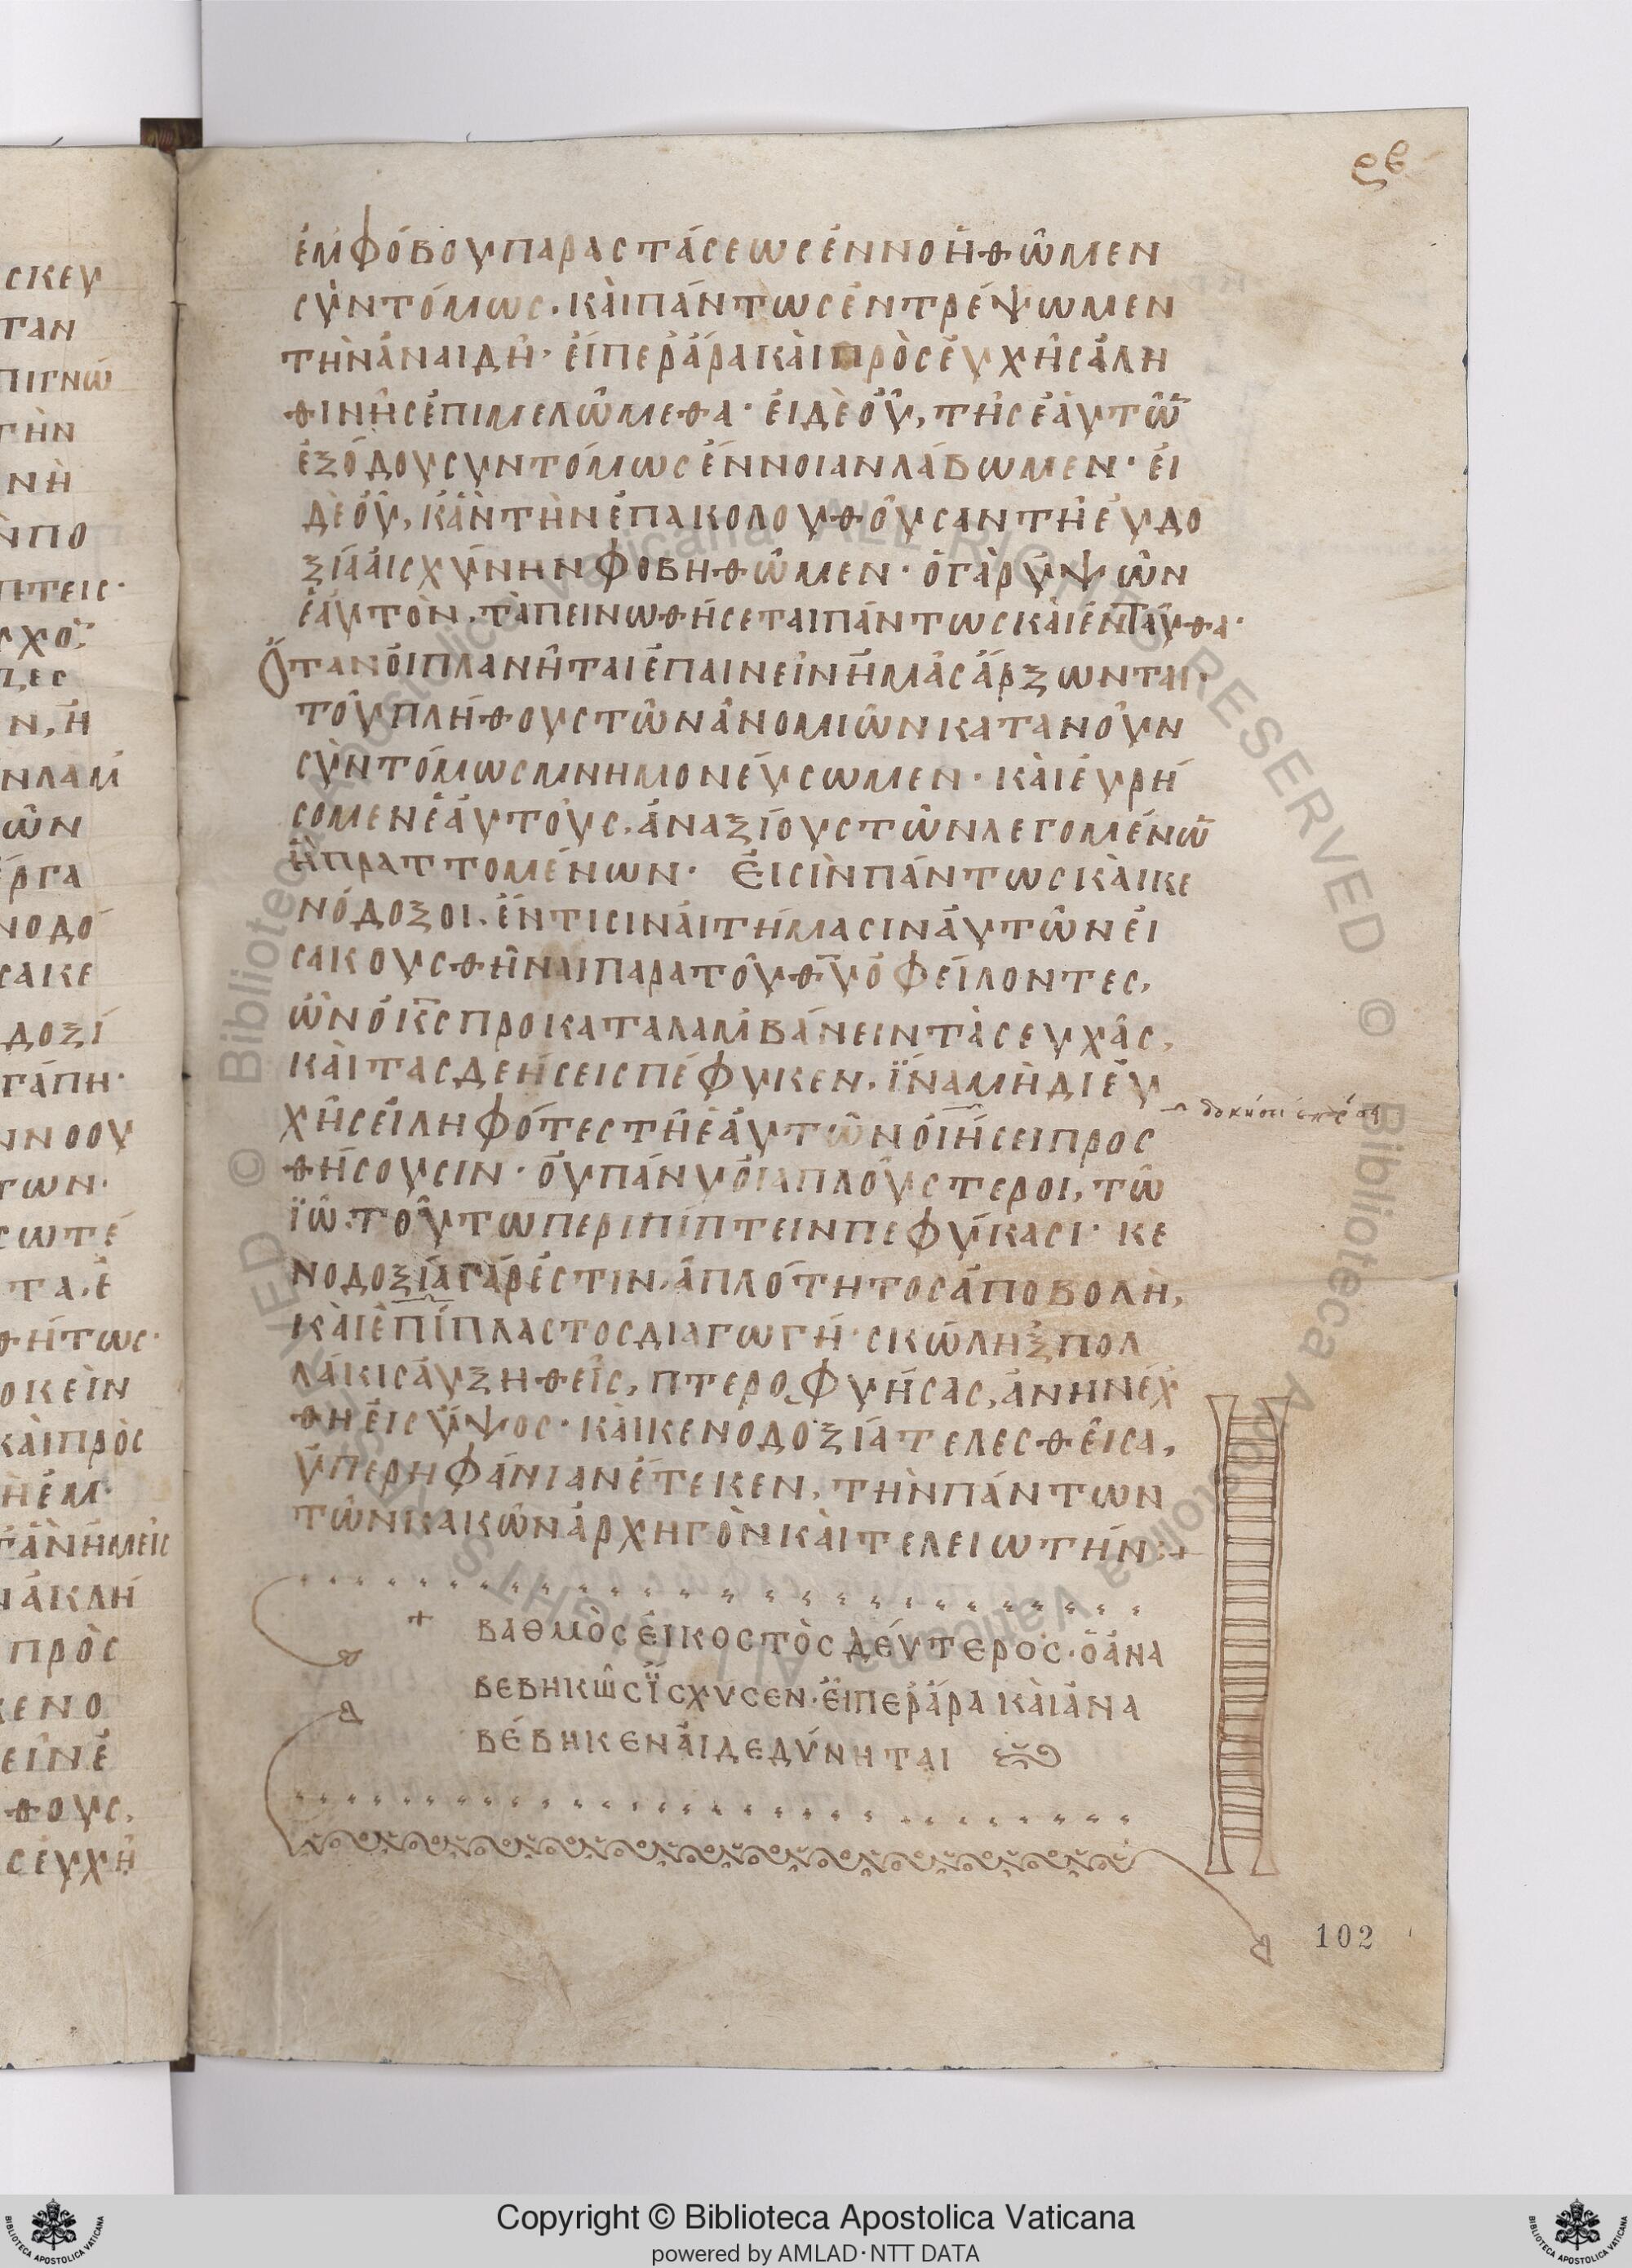 ϟβ
ἐμφόβου παραστάσεως ἐννοηθῶμεν
συντόμως. καὶ πάντως ἐντρέψωμεν
τὴν ἀναιδῆ· εἴπερ ἄρα καὶ πρὸς εὐχῆς ἀλη
θινῆς ἐπιμελώμεθα· εἰ δὲ οὔ, τῆς ἑαυτῶ̅
ἐξόδου συντόμως ἔννοιαν λάβωμεν· εἰ
δὲ οὔ, κἂν τὴν ἐπακολουθοῦσαν τῇ εὐδο
ξίᾳ αἰσχύνην φοβηθῶμεν· ὁ γὰρ ὑψῶν
ἑαυτὸν, ταπεινωθήσεται πάντως καὶ ἐνταῦθα·
Ὅταν οἱ πλανῆται ἐπαινεῖν ἡμᾶς ἄρξωνται·
τοῦ πλήθους τῶν ἀνομιῶν κατανοῦν
συντόμως μνημονεύσωμεν· καὶ εὑρή
σομεν ἑαυτοὺς, ἀναξίους τῶν λεγομένω̅
ἢ πραττομένων· Εἰσὶν πάντως καὶ κε
νόδοξοι, ἔν τισιν αἰτήμασιν αὐτῶν εἰ
σακουσθῆναι παρὰ τοῦ θ̅υ̅ ὀφείλοντες,
ὧν ὁ κ̅ς̅ προκαταλαμβάνειν τὰς εὐχὰς,
καὶ τὰς δεήσεις πέφυκεν, ἵνα μὴ δι' εὐ
χῆς εἰληφότες τῇ ἑαυτῶν οἰήσει προσ
θήσουσιν· οὐ πάνυ οἱ ἁπλούστεροι, τῷ
ἰῷ τούτῳ περιπίπτειν πεφύκασι· κε
νοδοξία γάρ ἐστιν, ἁπλότητος ἀποβολὴ,
καὶ ἐπίπλαστος διαγωγή· σκώληξ πολ
λάκις αὐξηθεὶς, πτεροφυήσας, ἀνηνέχ
θη εἰς ὕψος· καὶ κενοδοξία τελεσθεῖσα,
ὑπερηφάνιαν ἔτεκεν, τὴν πάντων
τῶν κακῶν ἀρχηγὸν καὶ τελειωτήν:+
+ βαθμὸς εἰκοστὸς δεύτερος· ὁ ἀνα
βεβηκὼς ἴσχυσεν· εἴπερ ἄρα καὶ ἀνα
βέβηκεν ἀιδεδύνηται
102
Copyright © Biblioteca Apostolica Vaticana
powered by AMLAD·NTT DATA